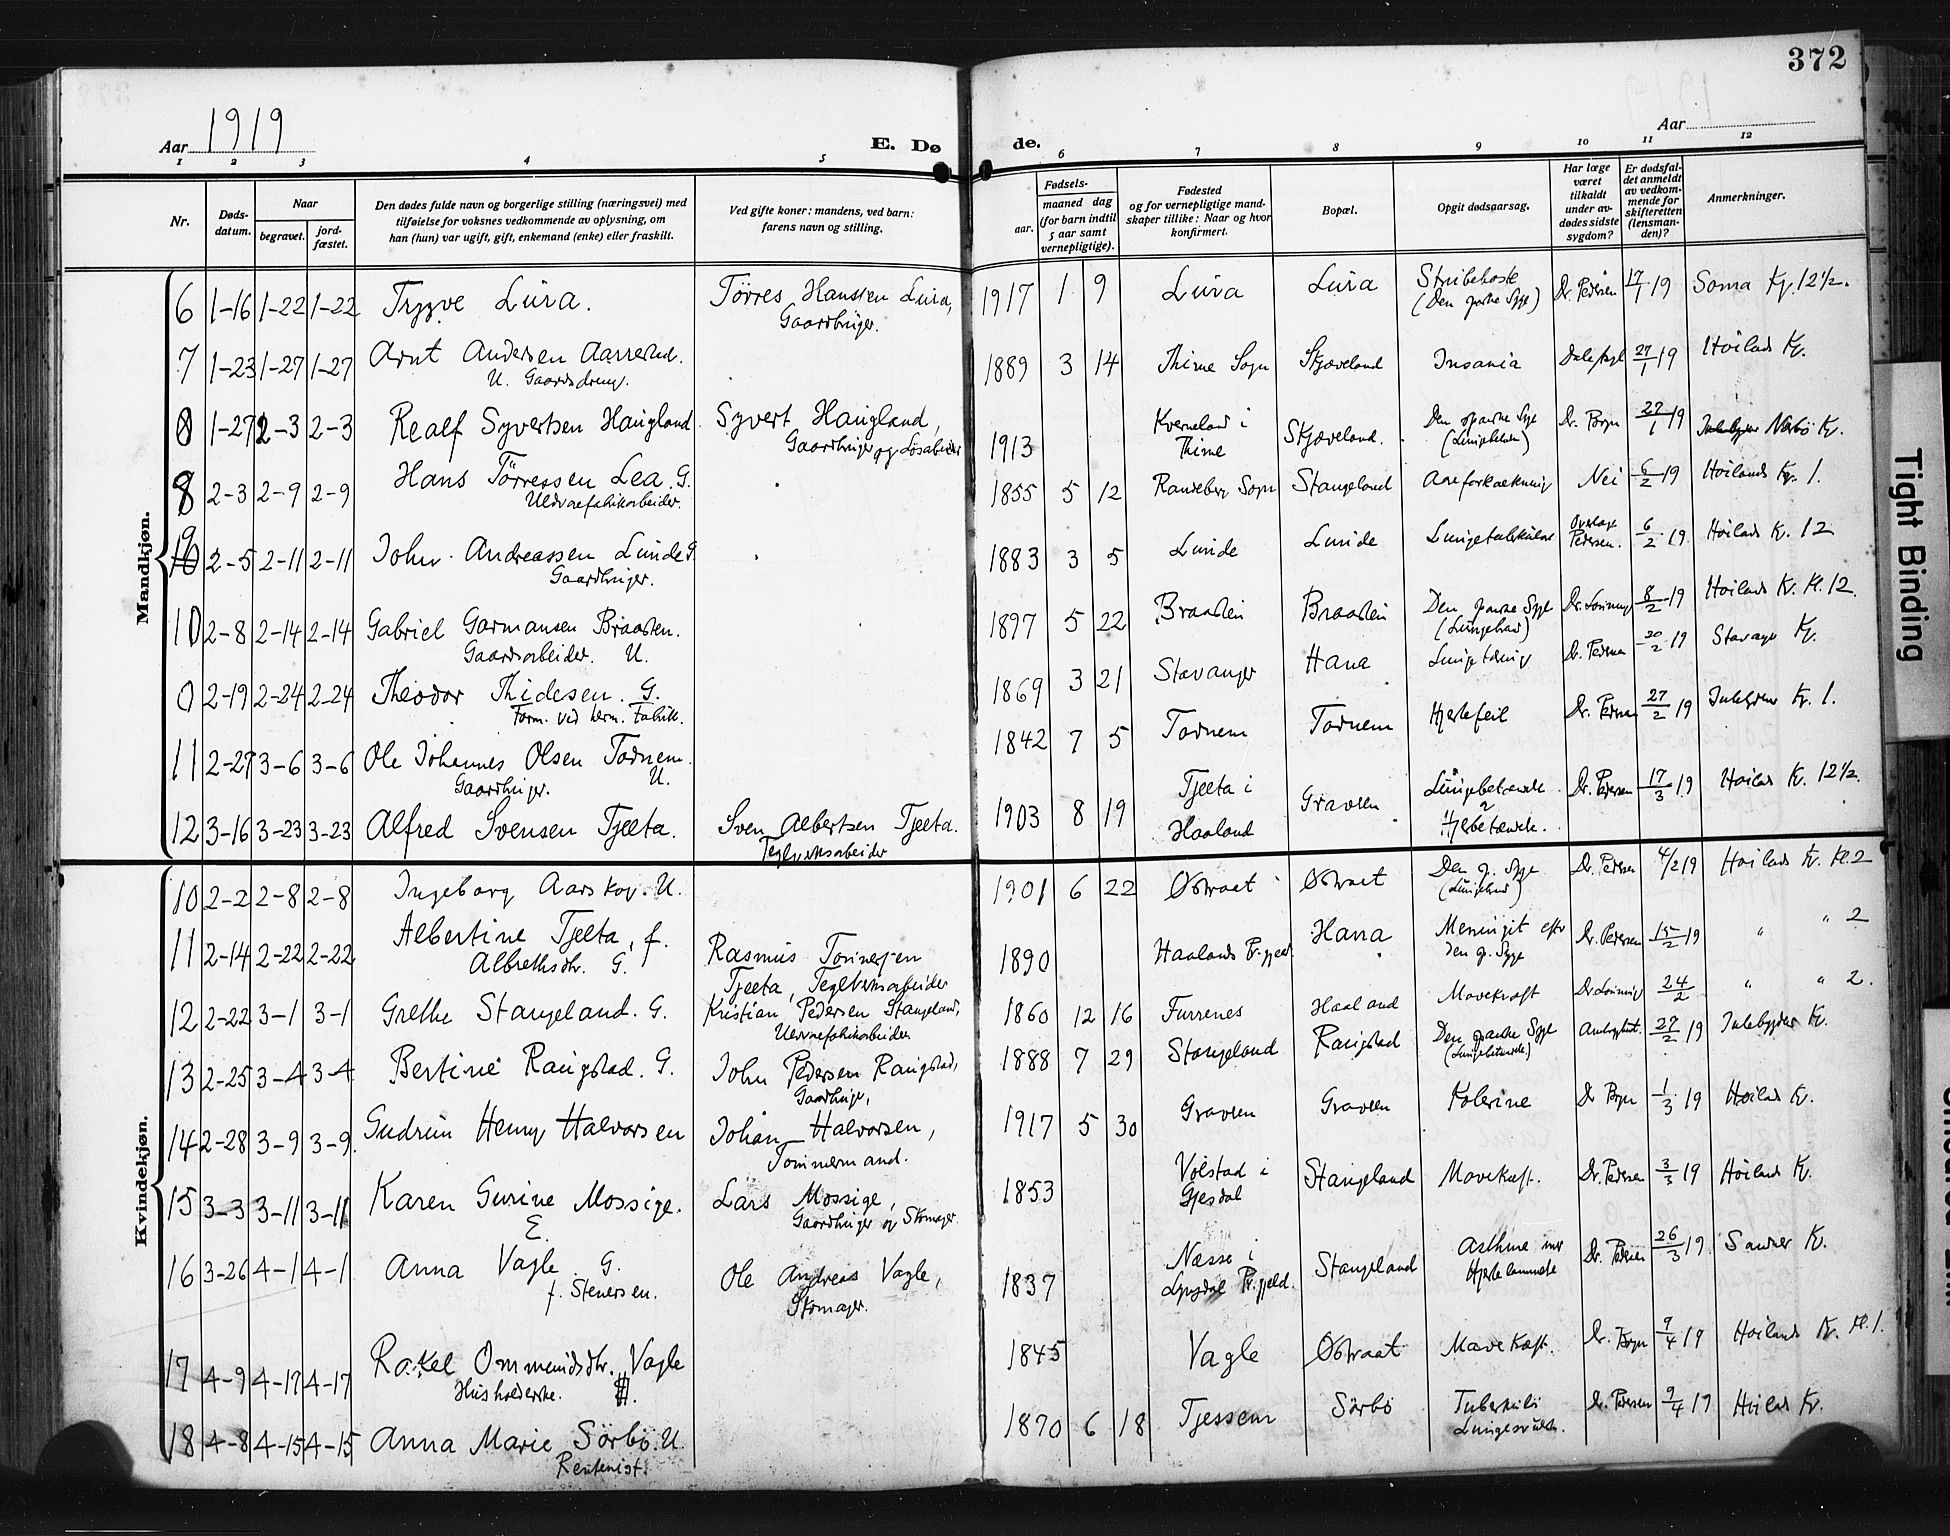 372
Aar 1919
E. Dø
de.
Aar
1 2 3 4 5 6 7 8 9 10 11 12
Nr.
Døds-
datum.
Naar
begravet.
jord-
fæstet.
Den dødes fulde navn og borgerlige stilling (næringsvei) med
tilføielse for voksnes vedkommende av oplysning, om
han (hun) var ugift, gift, enkemand (enke) eller fraskilt.
Ved gifte koner: mandens, ved barn:
farens navn og stilling.
aar.
Fødsels-
maaned dag
(for barn indtil
5 aar samt
vernepligtige).
Fødested
og for vernepligtige mand-
skaper tillike: Naar og hvor
konfirmert.
Bopæl.
Opgit dødsaarsag.
Har læge
været
tilkaldt
under av-
dødes sidste
sygdom?
Er dødsfal-
det anmeldt
av vedkom-
mende for
skifteretten
(lensman-
den)?
Anmerkninger.
Mandkjøn.
6 1-16 1-22 1-22 Trygve Lura. Tørres Hanssen Lura, 1917 1 9 Lura Lura Strubehoste Dr. Pedersen 17/1 19 Soma Kg. 12½.
Gaardbruger. (Den spanske Syge)
7 1-23 1-27 1-27 Arnt Andersen Aarrestad. 1889 3 14 Thime Sogn Skjæveland Insania 27/1 19 Høiland Kg.
U. Gaardsdreng.
8 1-27 2-3 2-3 Realf Syvertsen Haugland. Syvert Haugland, 1913 Kverneland i Thime Skjæveland. Den spanske Syge Dr. Bryn 27/1 19 Nærbø Kg.
Gaardbruger og Løsarbeider
8 2-3 2-9 2-9 Hans Tørressen Lea. G. 1855 5 12 Randeberg Sogn Stangeland Aareforkalkning Nei 6/2 19 Høilands Kg. 1.
Uldvarefabrikarbeider.
9 10 2-5 2-11 2-11 John Andreassen Lunde G. 1883 3 5 Lunde Lunde Lungetuberkulose Overlæge Pedersen. 6/2 19 Høiland Kg. 12
Gaardbruger.
10 2-8 2-14 2-14 Gabriel Garmansen Braasten. 1897 5 22 Braastein Braastein Den spanske Syge 8/2 19 Høilands Kg. Kl. 12.
Gaardsarbeider. U.
0 2-19 2-24 2-24 Theodor Thidesen. G. 1869 3 21 Stavanger Hana Lungetæring Dr. Pedersen 20/2 19 Stavanger Kg.
Form. ved herm. Fabrikk.
11 2-27 3-6 3-6 Ole Johannes Olsen Todnem. 1842 7 5 Todnem Todnem Hjertefeil Dr. Pedersen 27/2 19 Julebygden Kg. 1.
Gaardbruger. U.
12 3-16 3-23 3-23 Alfred Svensen Tjelta. Sven Albertsen Tjelta. 1903 8 19 Tjelta i Haaland Gravren Lungebetændelse Dr. Pedersen 17/3 19 Høiland Kg. 12½.
Teglverksarbeider
Kvindekjøn.
10 2-2 2-8 2-8 Ingeborg Aarskog. U. 1901 6 22 Østraat Østraat Den sp. Syge Dr. Pedersen 4/2 19 Høilands Kg. Kl. 2
11 2-14 2-22 2-22 Albertine Tjelta, f. Rasmus Tønnesen 1890 Haalands Pr.gjeld. Hana Meningit efter den sp. Syge Dr. Pedersen 15/2 19 " " 2
Albrethsdtr. G. Tjelta, Teglverksarbeider
12 2-22 3-1 3-1 Grethe Stangeland. G. Kristian Pedersen Stangeland, 1860 12 16 Furrenes Haaland Mavekræft 24/2 " " 2.
Uldvarefabrikarbeider
13 2-25 3-4 3-4 Bertine Raugstad. G. John Pedersen Raugstad, 1888 7 29 Stangeland Raugstad Den spanske Syge 27/2 19 Julebygden Kg.
Gaardbruger,
14 2-28 3-9 3-9 Gudrun Henny Halvorsen Johan Halvorsen, 1917 5 30 Gravren Gravren Kolerine Dr Bryn 1/3 19 Høiland Kg.
Tømmermand.
15 3-3 3-11 3-11 Karen Gurine Mossige. Lars Mossige, 1853 Volstad i Gjesdal Stangeland Mavekræft. Dr. Pedersen 3/3 19 Høiland Kg.
E. Gaardbruger og Skomager.
16 3-26 4-1 4-1 Anna Vagle G. Ole Andreas Vagle, 1837 Næsse i Lyngdal Pr.gjeld. Stangeland Asthma med Hjertelammelse Dr. Pedersen 26/3 19. Sandnes Kg.
f. Stenersen. Skomager.
17 4-9 4-17 4-17 Rakel Ommundsdtr. Vagle 1845 Vagle Østraat Mavekræft. Dr. Bryn 9/4 19 Høilands Kg. Kl. 1.
Husholderske.
18 4-8 4-15 4-15 Anna Marie Sörbö. U. 1870 6 18 Tjessem Sörbö Tuberkuløs Dr. Pedersen 9/4 19 Høiland Kg.
Rentenist.
Tight Binding